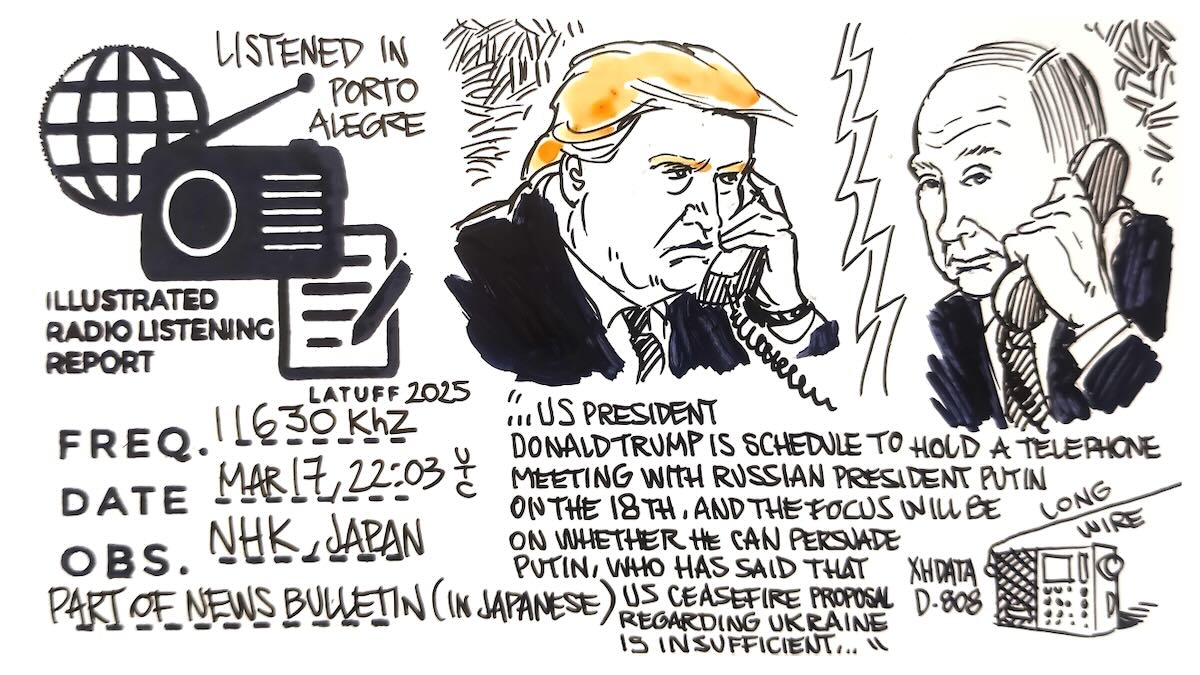 LISTENED IN
PORTO
ALEGRE
ILLUSTRATED
RADIO LISTENING
REPORT
LATUFF 2025
FREQ. 11630 KHZ
DATE MAR 17, 22:03 UTC
OBS. NHK, JAPAN
PART OF NEWS BULLETIN (IN JAPANESE)
"... US PRESIDENT
DONALD TRUMP IS SCHEDULE TO HOLD A TELEPHONE
MEETING WITH RUSSIAN PRESIDENT PUTIN
ON THE 18TH, AND THE FOCUS WILL BE
ON WHETHER HE CAN PERSUADE
PUTIN, WHO HAS SAID THAT
US CEASEFIRE PROPOSAL
REGARDING UKRAINE
IS INSUFFICIENT... "
LONG
WIRE
XHDATA
D-808